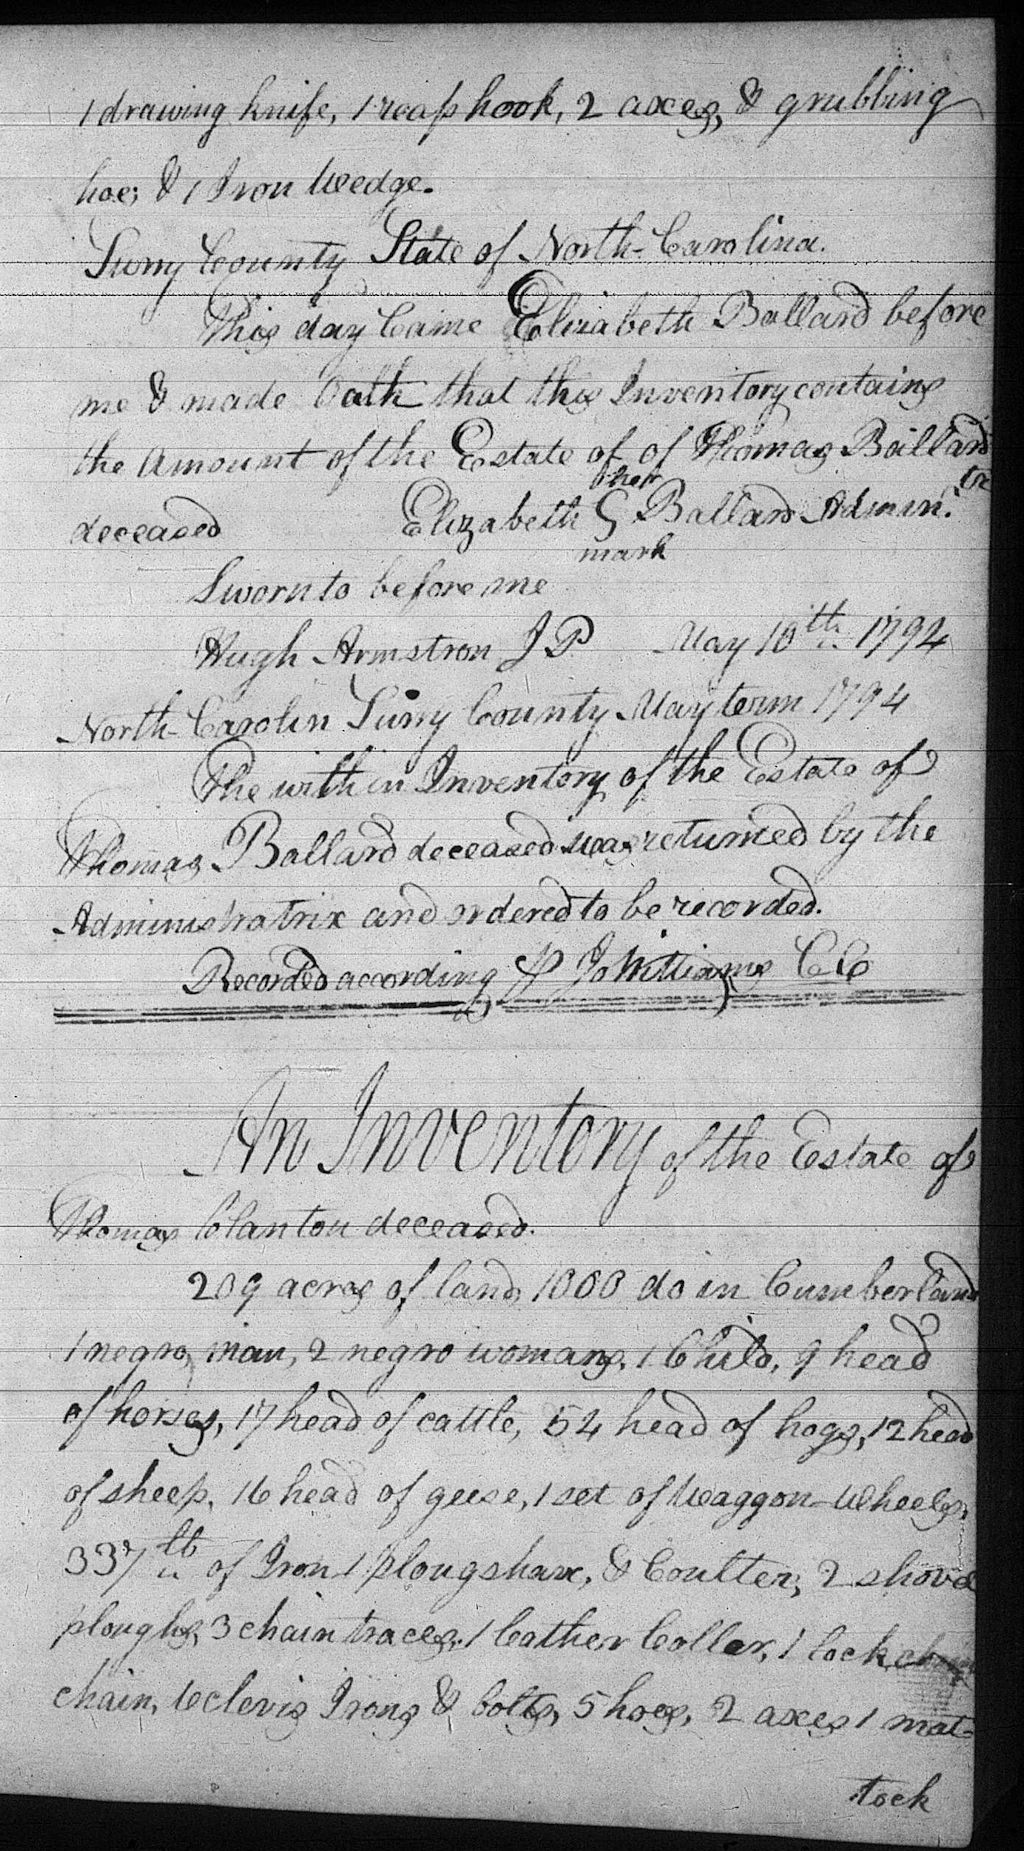 1 drawing knife, 1 reap hook, 2 axes, & grubbing
hoe; & 1 Iron Wedge.
Surry County State of North-Carolina.
This day Came Elizabeth Ballard before
me & made Oath that this Inventory contains
the Amount of the Estate of of Thomas Ballard
her
deceased Elizabeth G Ballard Admin. tx
mark
Sworn to before me
Hugh Armstron J P May 10th 1794
North-Carolin Surry County May term 1794
The within Inventory of the Estate of
Thomas Ballard deceased was returned by the
Administratrix and ordered to be recorded.
Recorded according Jo Williams C C
An Inventory of the Estate of
Thomas Clanton deceased.
209 acres of land, 1000 do in Cumberland
1 negro man, 2 negro womans, 1 Child, 9 head
of horses, 17 head of cattle, 54 head of hogs, 12 head
of sheep, 16 head of geese, 1 set of Waggon-Wheels,
337 lb of Iron 1 plougshare, & Coulter, 2 shovel
ploughs, 3 chain traces, 1 Cather Collar, 1 lock
chain, 6 clevis Irons & bolts, 5 hoes, 2 axes 1 mat-
tock